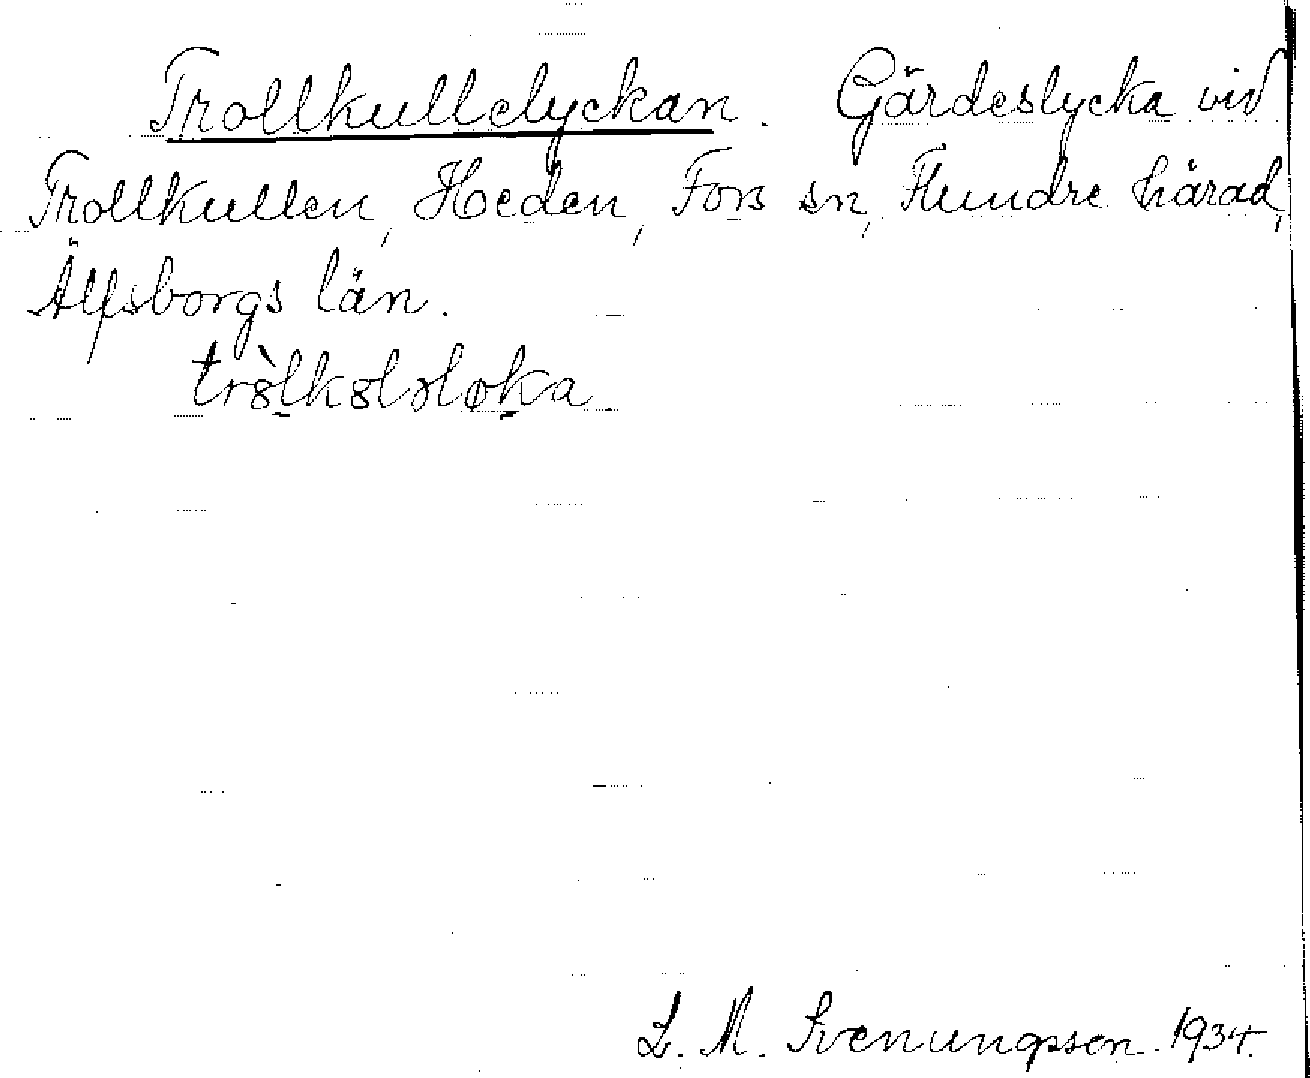 Trollkullelyckan. Gärdeslycka vid
Trollkullen, Heden, Fors sn, Flundre härad,
Älfsborgs län.
L. M. Svenungsson 1934.